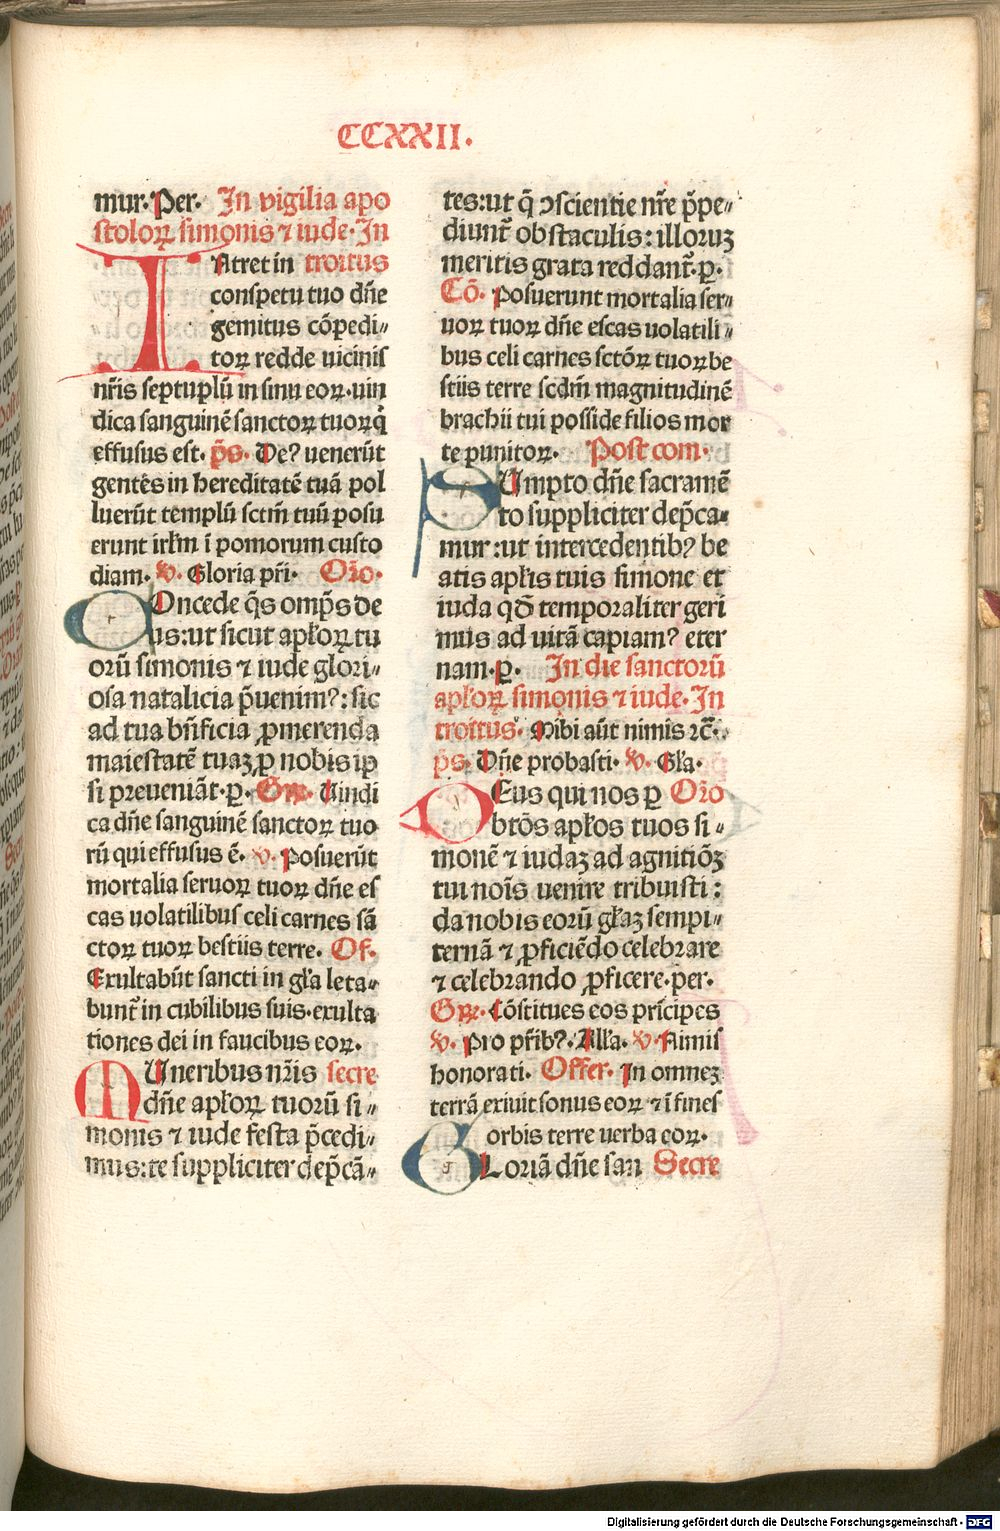 CCXXII.
mur. Per. In vigilia apo
stoloꝝ simonis ⁊ iude. In
INtret in troitus
conspetu tuo dn̄e
gemitus cōpedi〃
toꝝ redde uicinis
nr̄is septuplū in sinu eoꝝ. uin
dica sanguinē sanctoꝝ tuoꝝ q̇
effusus est. p̄s. De? uenerūt
gentēs in hereditatē tuā pol
luerūt templū sctm̄ tuū posu
erunt irłm ī pomorum custo
diam. v. Gloria pr̄i. Oro.
COncede q̄s omp̄s de
us: ut sicut apłoꝝ tu
orū simonis ⁊ iude glori〃
osa natalicia p̄uenim?: sic
ad tua bn̄ficia ꝓmerenda
maiestatē tuaꝫ ꝑ nobis ip
si preueniāt. ꝑ. Gꝝ. Vindi
ca dn̄e sanguinē sanctoꝝ tuo
rū qui effusus ē. v. Posuerūt
mortalia seruoꝝ tuoꝝ dn̄e es
cas uolatilibus celi carnes sā
ctoꝝ tuoꝝ bestiis terre. Of.
Exultabūt sancti in gła leta〃
bunt̄ in cubilibus suis. exulta
tiones dei in faucibus eoꝝ.
MUneribus nr̄is secre
dn̄e apłoꝝ tuorū si〃
monis ⁊ iude festa p̄cedi〃
mus: te suppliciter dep̄cā〃
tes: ut q̄ ↄscientie nr̄e p̄pe〃
diunt̄ obstaculis: illoruꝫ
meritis grata reddant̄. ꝑ.
Cō. Posuerunt mortalia ser〃
uoꝝ tuoꝝ dn̄e escas uolatili〃
bus celi carnes sctōꝝ tuoꝝ be
stiis terre scdm̄ magnitudinē
brachii tui posside filios mor
te punitoꝝ. Post com.
SUmpto dn̄e sacramē
to suppliciter dep̄ca〃
mur: ut intercedentib? be
atis apłis tuis simone et
iuda qd̄ temporaliter geri
mus ad uitā capiam? eter
nam. ꝑ. In die sanctorū
apłoꝝ simonis ⁊ iude. In
troitus. Mihi aūt nimis ⁊c̄.
p̄s. Dn̄e probasti. v. Gła.
DEus qui nos ꝑ Oro
btōs apłos tuos si〃
monē ⁊ iudaꝫ ad agnitiōꝫ
tui nōis uenire tribuisti:
da nobis eorū głaꝫ sempi〃
ternā ⁊ ꝓficiēdo celebrare
⁊ celebrando ꝓficere. per.
Gꝝ. Cōstitues eos pr̄icipes
v. Pro pr̄ib?. Ałła. v. Nimis
honorati. Offer. In omneꝫ
terrā exiuit sonus eoꝝ ⁊ ī fines
orbis terre uerba eoꝝ.
GLoriā dn̄e san Secre
Digitalisierung gefördert durch die Deutsche Forschungsgemeinschaft - DFG